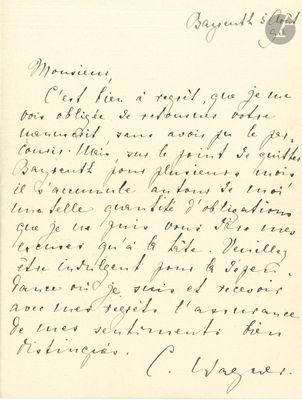 Bayreuth 5 Août
Monsieur,
C'est bien à regret, que je me
vois obligée de retourner votre
manuscrit sans avoir pu le par-
courir. Mais sur le point de quitter
Bayreuth pour plusieurs mois
il s'accumule autour de moi
une telle quantité d'obligations
que je ne puis vous dire mes
excuses qu'à la hâte. Veuillez
être indulgent pour la dépen-
dance où je suis et recevoir
avec mes regrets l'assurance
de mes sentiments bien
distingués.
C. Wagner.